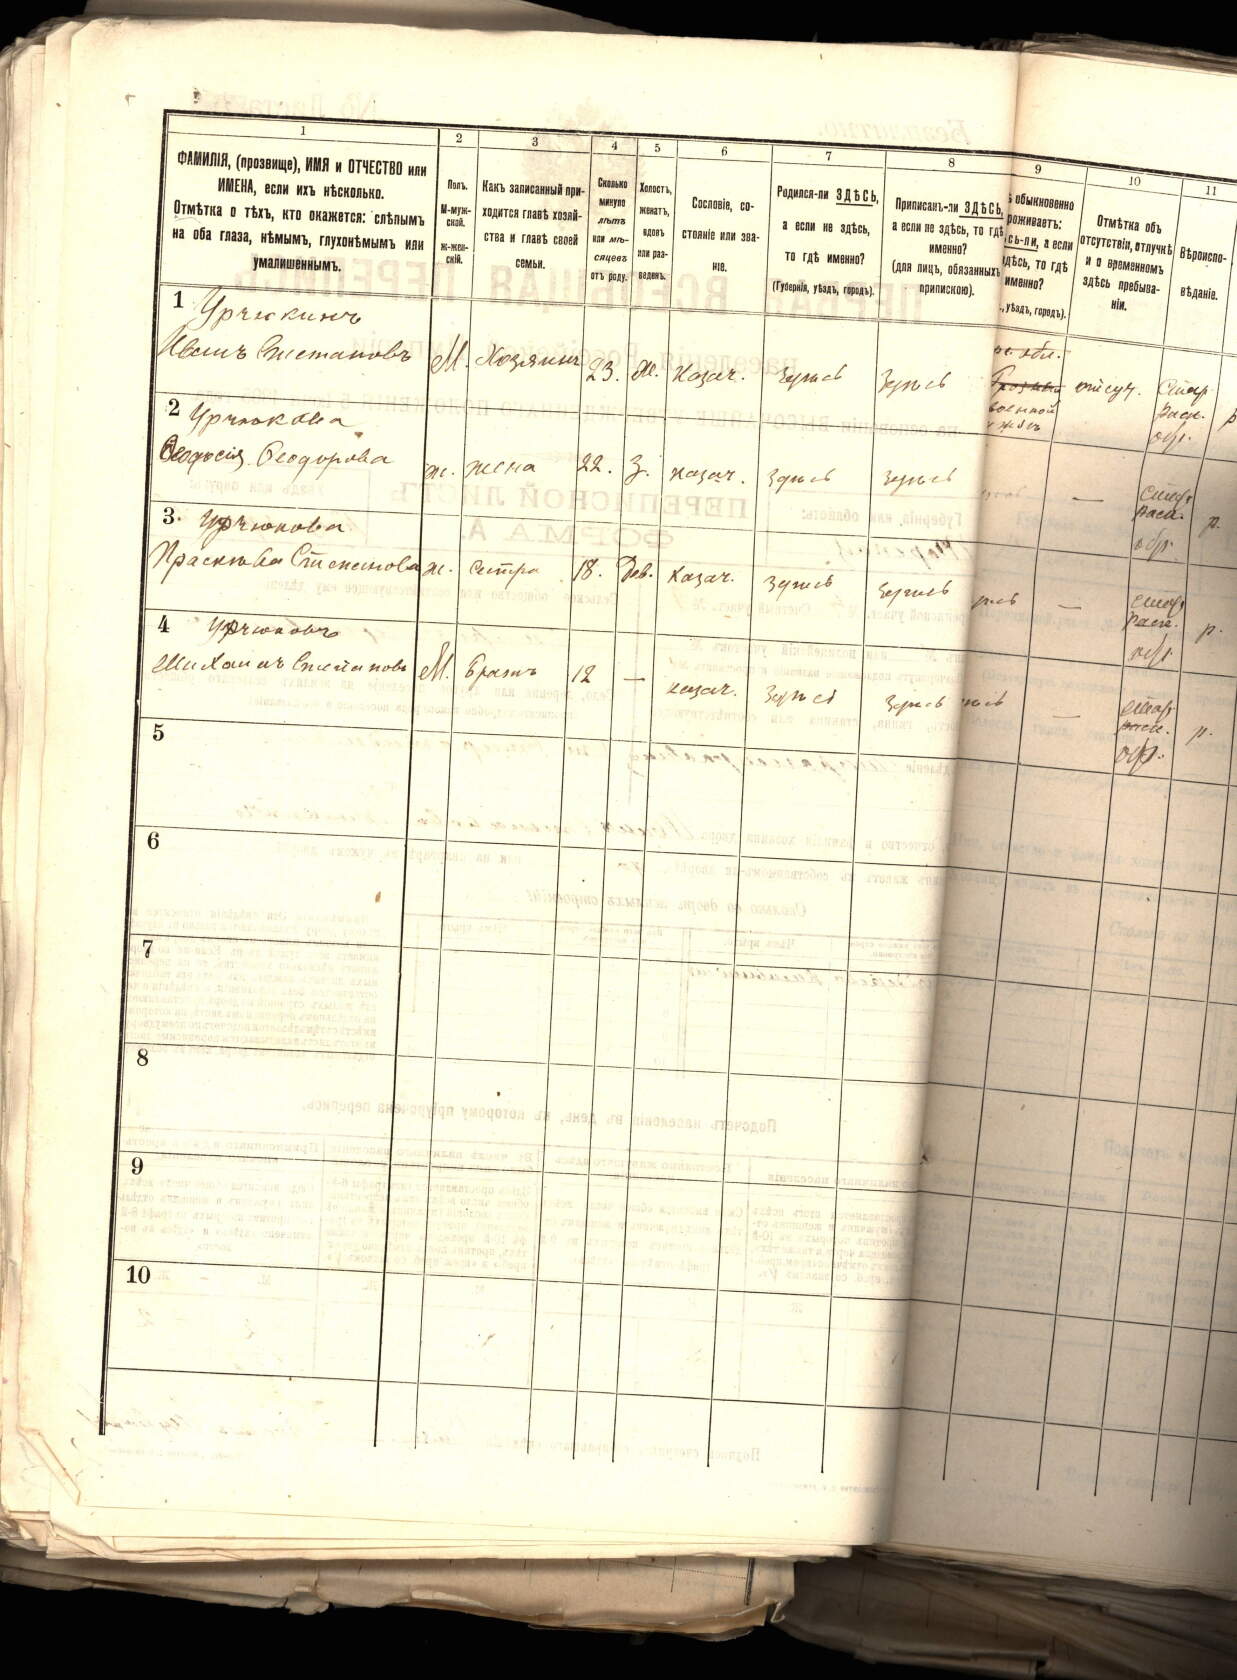 1 2 3 4 5 6 7 8 9 10 11
ФАМИЛІЯ, (прозвище), ИМЯ и ОТЧЕСТВО или
ИМЕНА, если ихъ нѣсколько.
Отмѣтка о тѣхъ, кто окажется: слѣпымъ
на оба глаза, нѣмымъ, глухонѣмымъ или
умалишеннымъ.
Полъ.
М-муж-
ской.
ж-жен-
скій.
Какъ записанный при-
ходится главѣ хозяй-
ства и главѣ своей
семьи.
Сколько
минуло
лѣтъ
или мѣ-
сяцевъ
отъ роду.
Холостъ,
женатъ,
вдовъ
или раз-
веденъ.
Сословіе, со-
стояніе или зва-
ніе.
Родился-ли ЗДѢСЬ,
а если не здѣсь,
то гдѣ именно?
(Губернія, уѣздъ, городъ).
Приписанъ-ли ЗДѢСЬ,
а если не здѣсь, то гдѣ
именно?
(для лицъ, обязанныхъ
припискою).
обыкновенно
роживаетъ:
сь-ли, а если
здѣсь, то гдѣ
именно?
., уѣздъ, городъ).
Отмѣтка объ
отсутствіи, отлучкѣ
и о временномъ
здѣсь пребыва-
ніи.
Вѣроиспо-
вѣданіе.
1
Иванъ Степановъ М. Хозяинъ 23. Ж. Казач. Здѣсь Здѣсь Грозный отсут. Стар.
обл.
военной
раск.
обр.
2 Урчюкова
Ѳеодосія Ѳеодорова ж. жена 22. З. казач. Здѣсь Здѣсь — Стар.
раск. р.
обр.
3. Урчюкова
Прасковья Степанова ж. Сестра 18. Дев. Казач. Здѣсь Здѣсь — Стар.
раск. р.
обр.
4 Урчюковъ
Михаилъ Степановъ М. Братъ 12 — казач. Здѣсь Здѣсь — Стар.
раск. р.
обр.
5
6
7
8
9
10